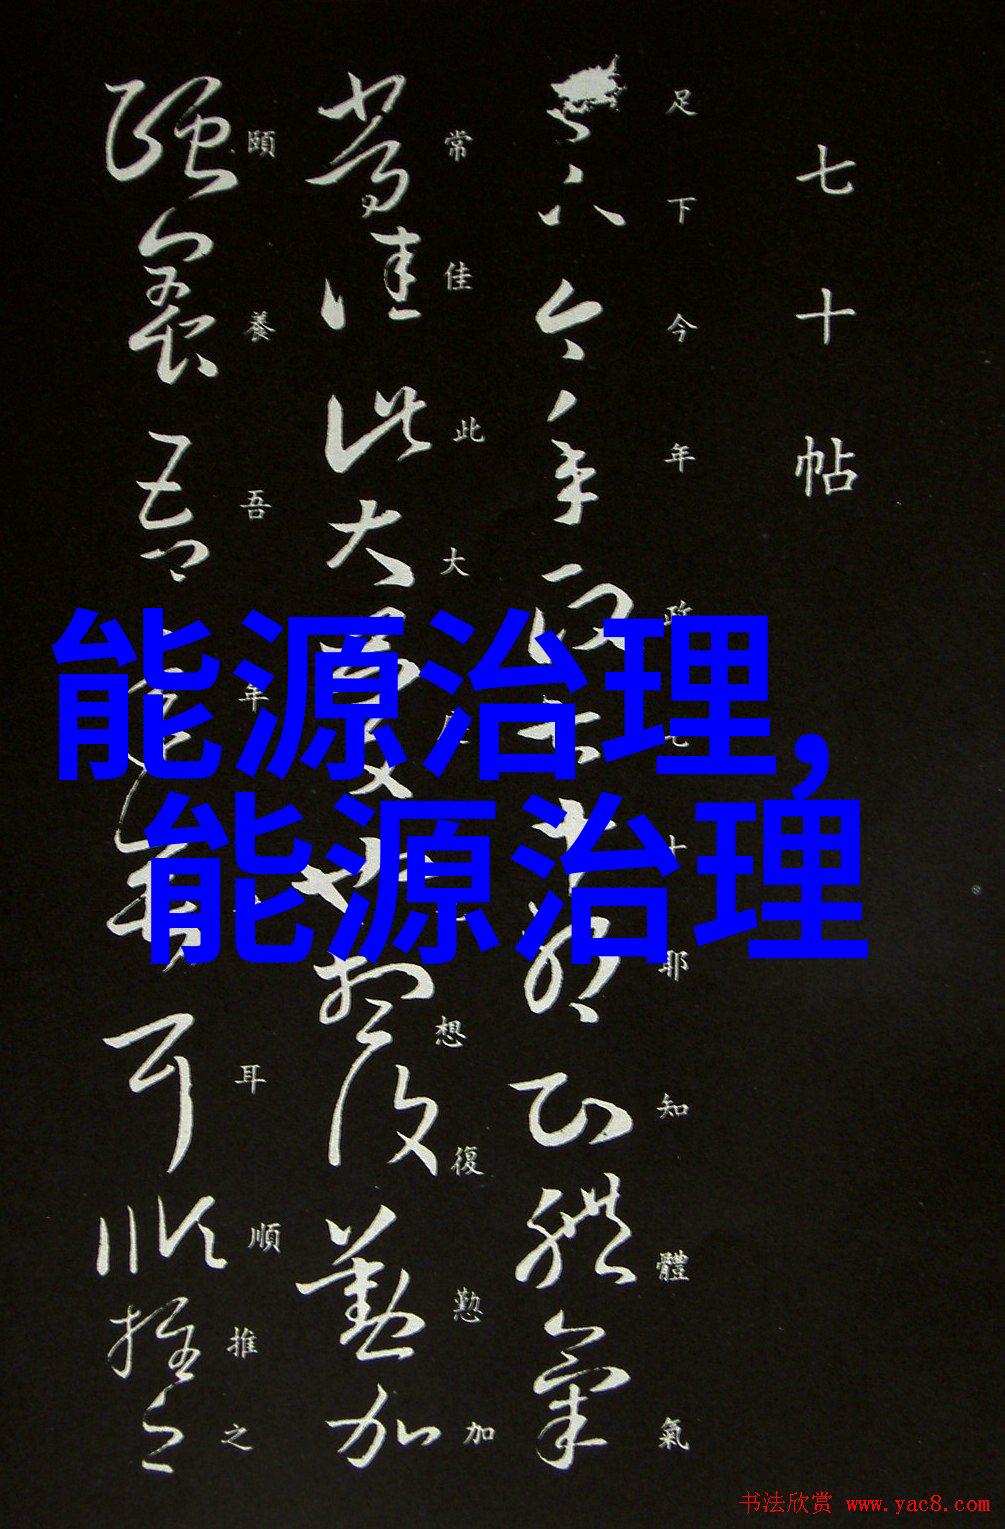 七十帖
足下今年政七十耶知體氣
常佳此大慶想復懃加
頤養吾年耳順推之
能源治理,
能源治理
书法欣赏 www.yac8.com